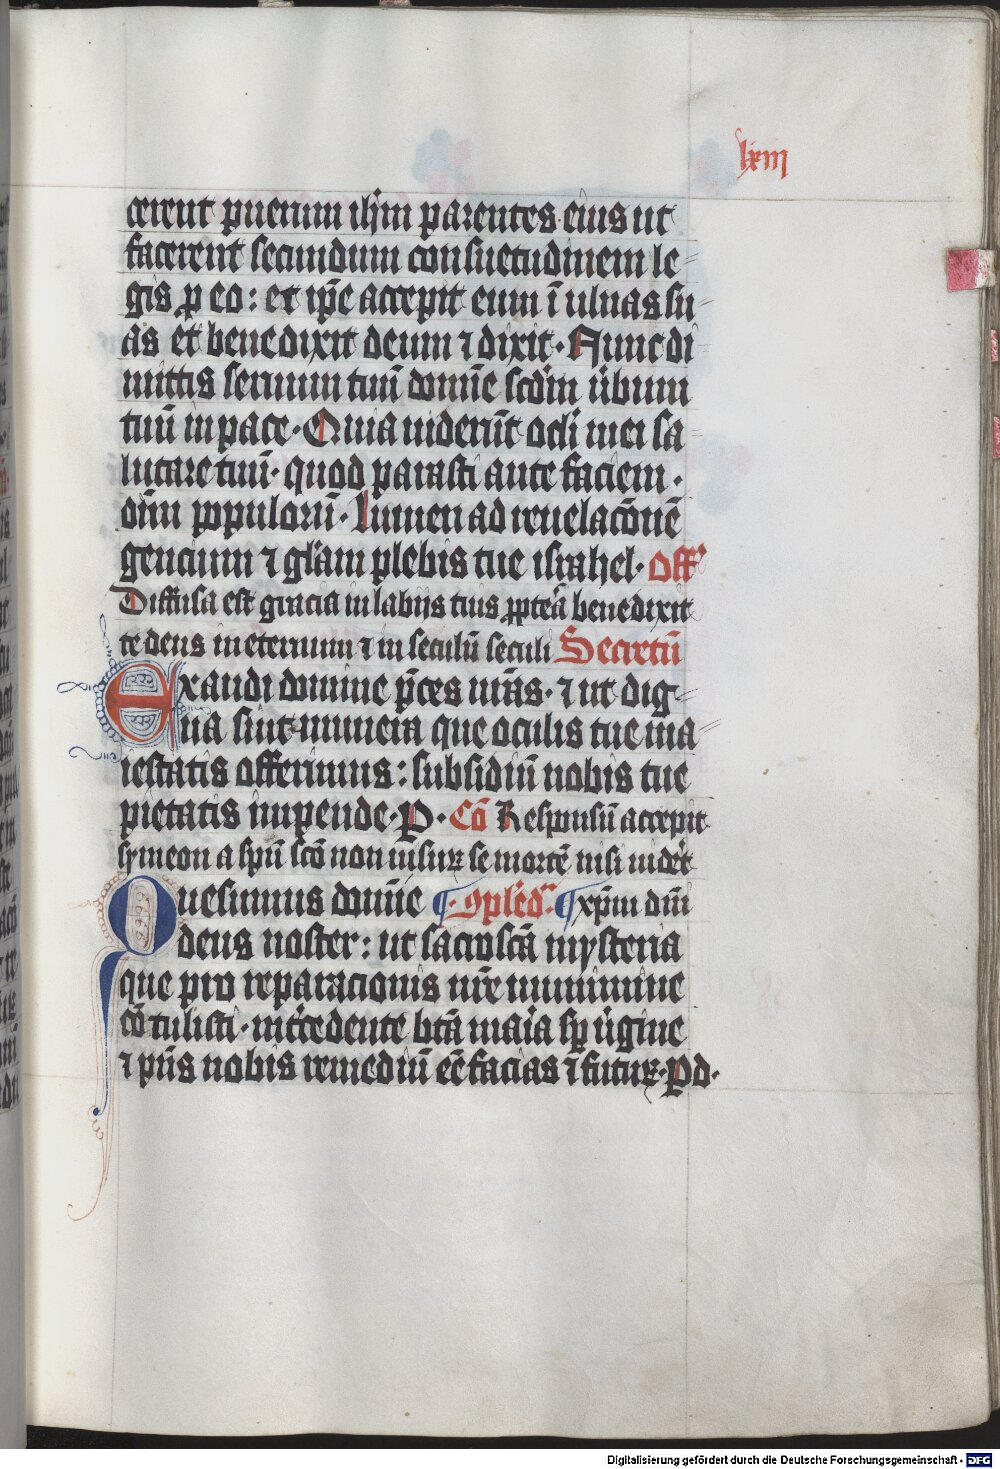 lxiii
cerent puerum ihm parentes eius ut
facerent secundum consuetudinem le-
gis p eo: et ipe accepit eum ī ulnas su-
as et benedixit deum ⁊ dixit. Nunc di
mittis seruum tuū domīe scdm ūbum
tuū in pace. Quia uiderūt ocli mei sa
lutare tuū. quod parasti ante faciem.
oīm populorū. Lumen ad reuelacōnē
gencium ⁊ glam plebis tue israhel. Off
Diffusa est gracia in labijs tuis ppteā benedixit
te deus in eternum ⁊ in seculū seculi Secretū
Exaudi domine pces nrās. ⁊ ut dig-
na sint munera que oculis tue ma-
iestatis offerimus: subsidiū nobis tue
pietatis impende. P. Cō Responsū accepit
symeon a spū scō non uisurꝝ se mortē nisi uidet
Quesumus domīe ¶ 9plēd ¶ xpm dīni
deus noster: ut sacroscā mysteria
que pro reparacionis nrē munimine
cōtulisti. intcedente btā maria sp ūgine
⁊ pns nobis remediū eē facias ⁊ futurꝝ. Pd.
Digitalisierung gefördert durch die Deutsche Forschungsgemeinschaft - DFG